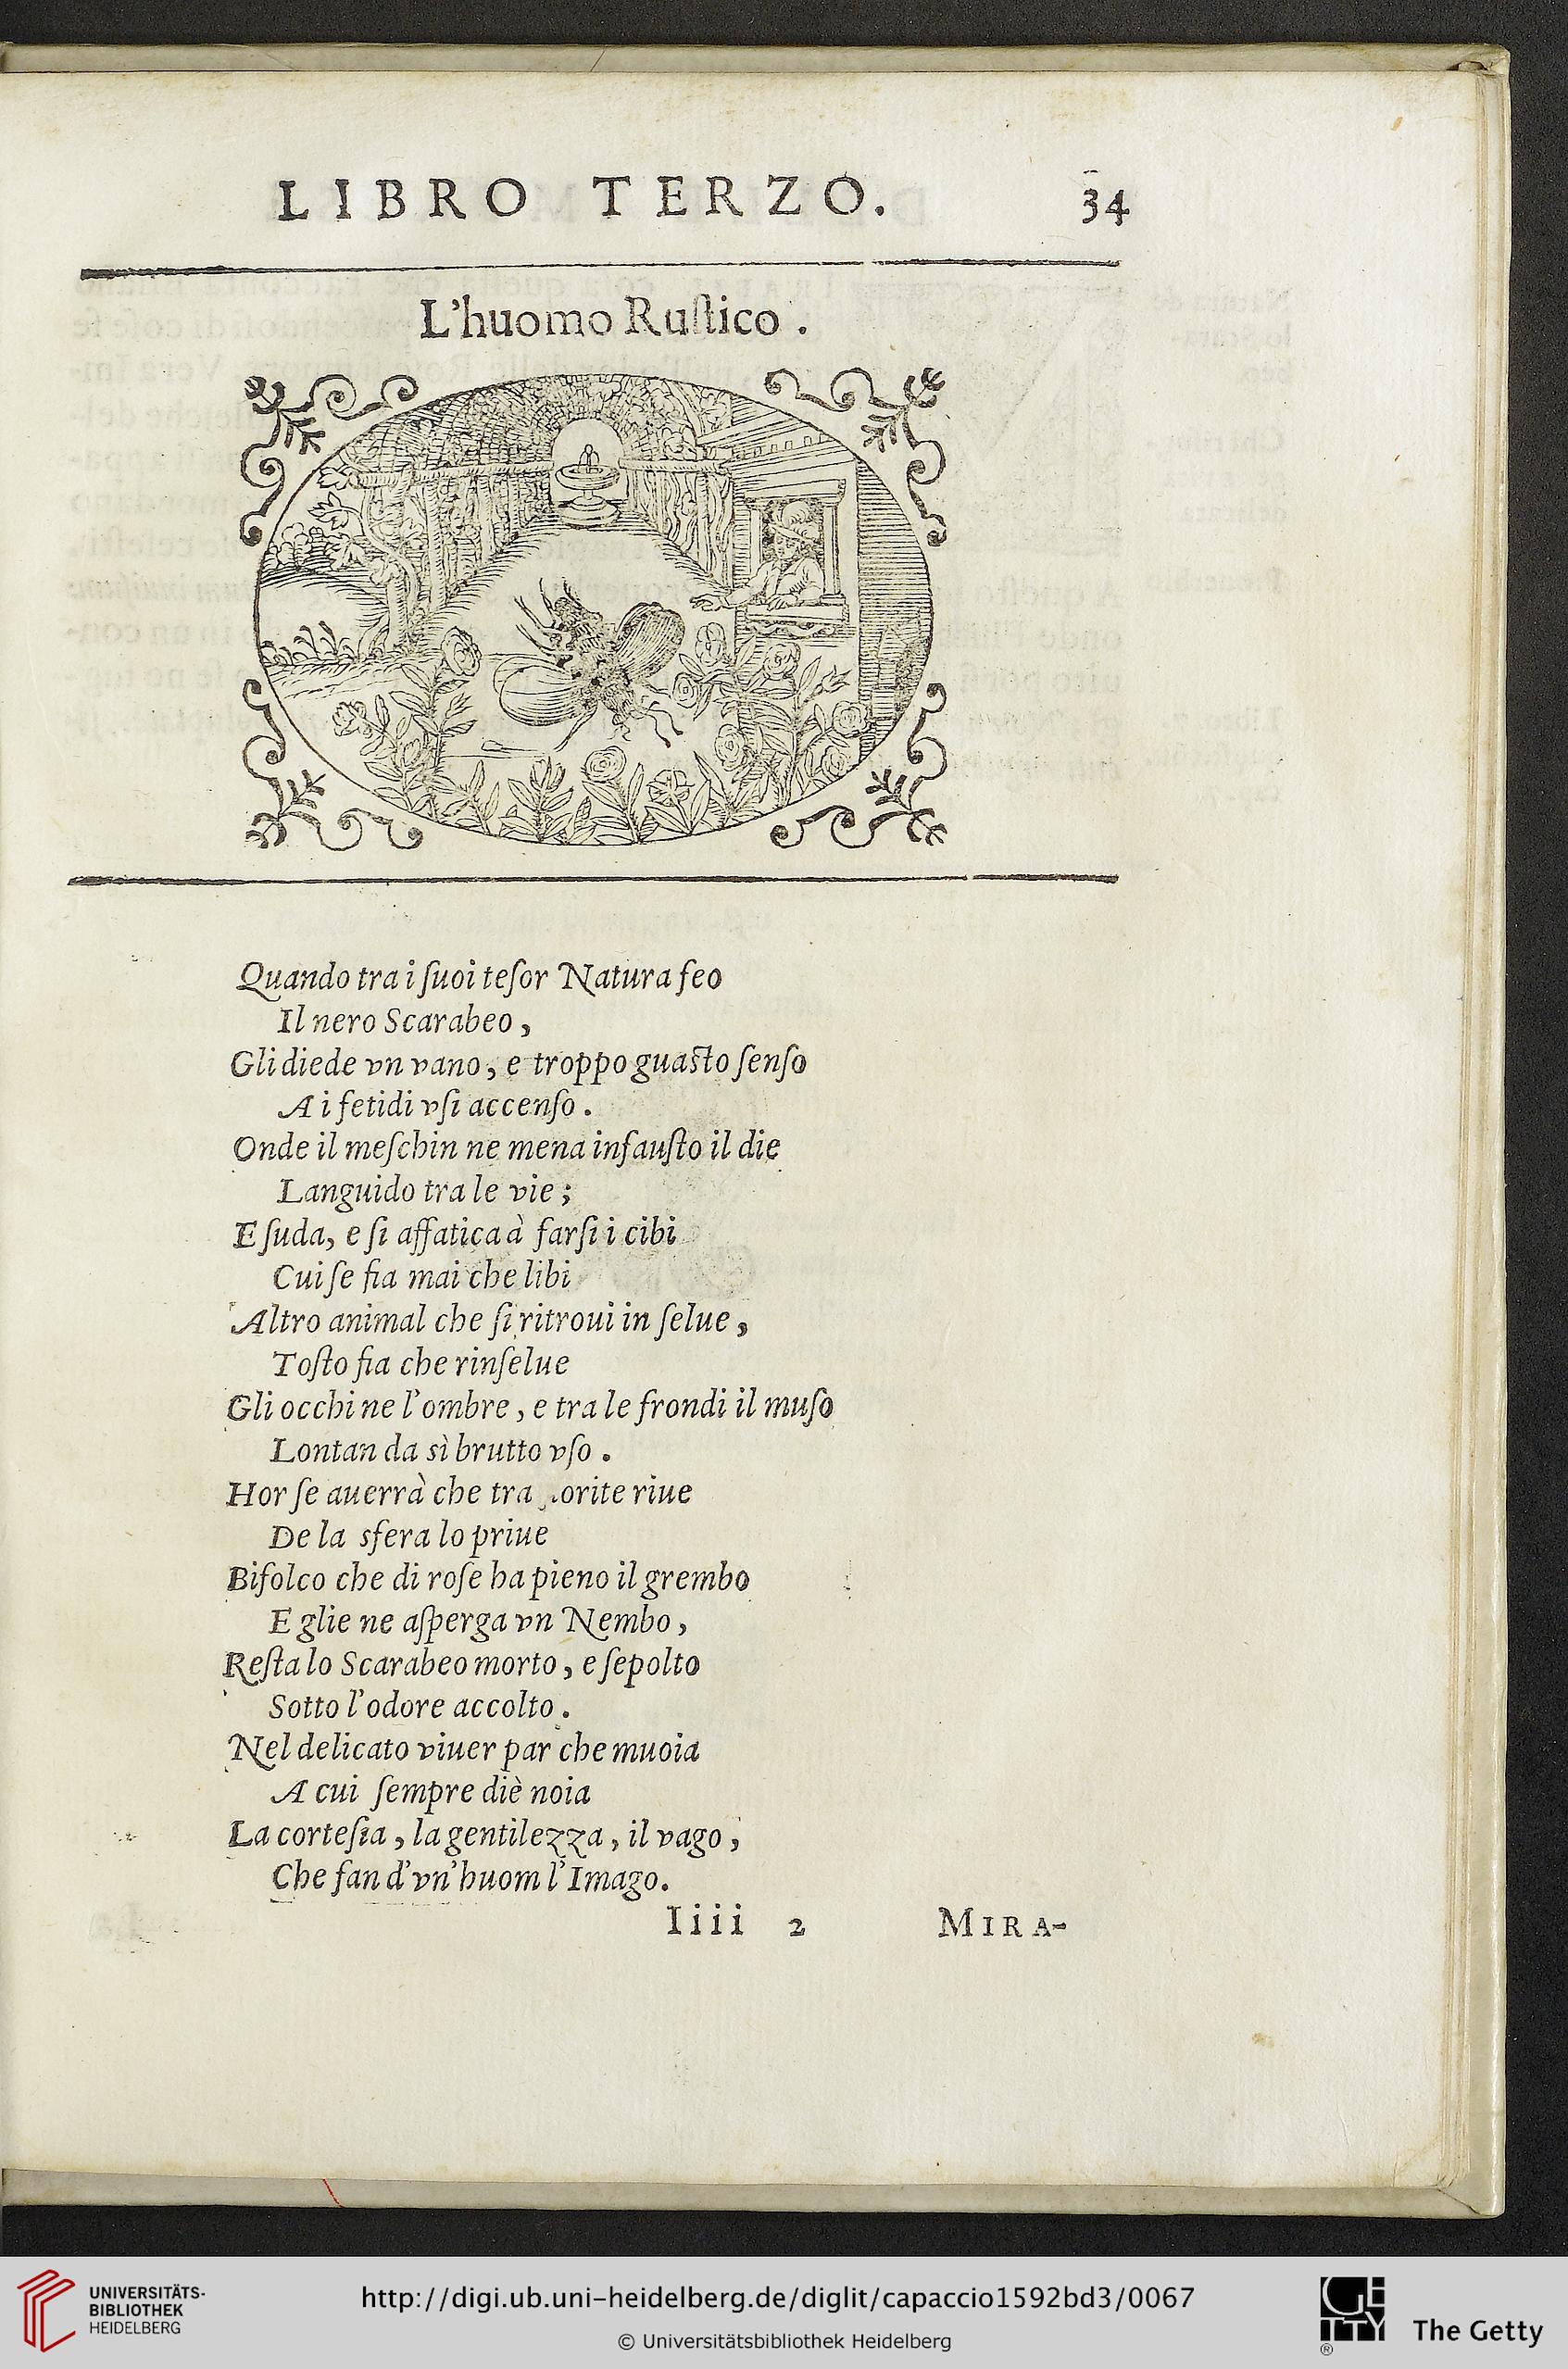 LIBRO TERZO. 34
L'huomo Ruſtico.
Quando tra i ſuoi teſor Natura feo
Il nero Scarabeo,
Gli diede vn vano, e troppo guaſto ſenſo
A i fetidi vſi accenſo.
Onde il meſchin ne mena infauſto il die
Languido tra le vie;
E ſuda, e ſi affatica à farſi i cibi
Cui ſe fia mai che libi
Altro animal che ſi ritroui in ſelue,
Toſto fia che rinſelue
Gli occhi ne l'ombre, e tra le frondi il muſo
Lontan da sì brutto vſo.
Hor ſe auerrà che tra orite riue
De la sfera lo priue
Bifolco che di roſe ha pieno il grembo
E glie ne aſperga vn Nembo,
Reſta lo Scarabeo morto, e ſepolto
Sotto l'odore accolto.
Nel delicato viuer par che muoia
A cui ſempre diè noia
La corteſia, la gentilezza, il vago,
Che fan d'vn'huom l'Imago.
Iiii 2 MIRA-
UNIVERSITÄTS-
BIBLIOTHEK
HEIDELBERG
http://digi.ub.uni-heidelberg.de/diglit/capaccio1592bd3/0067
© Universitätsbibliothek Heidelberg
GETTY
The Getty